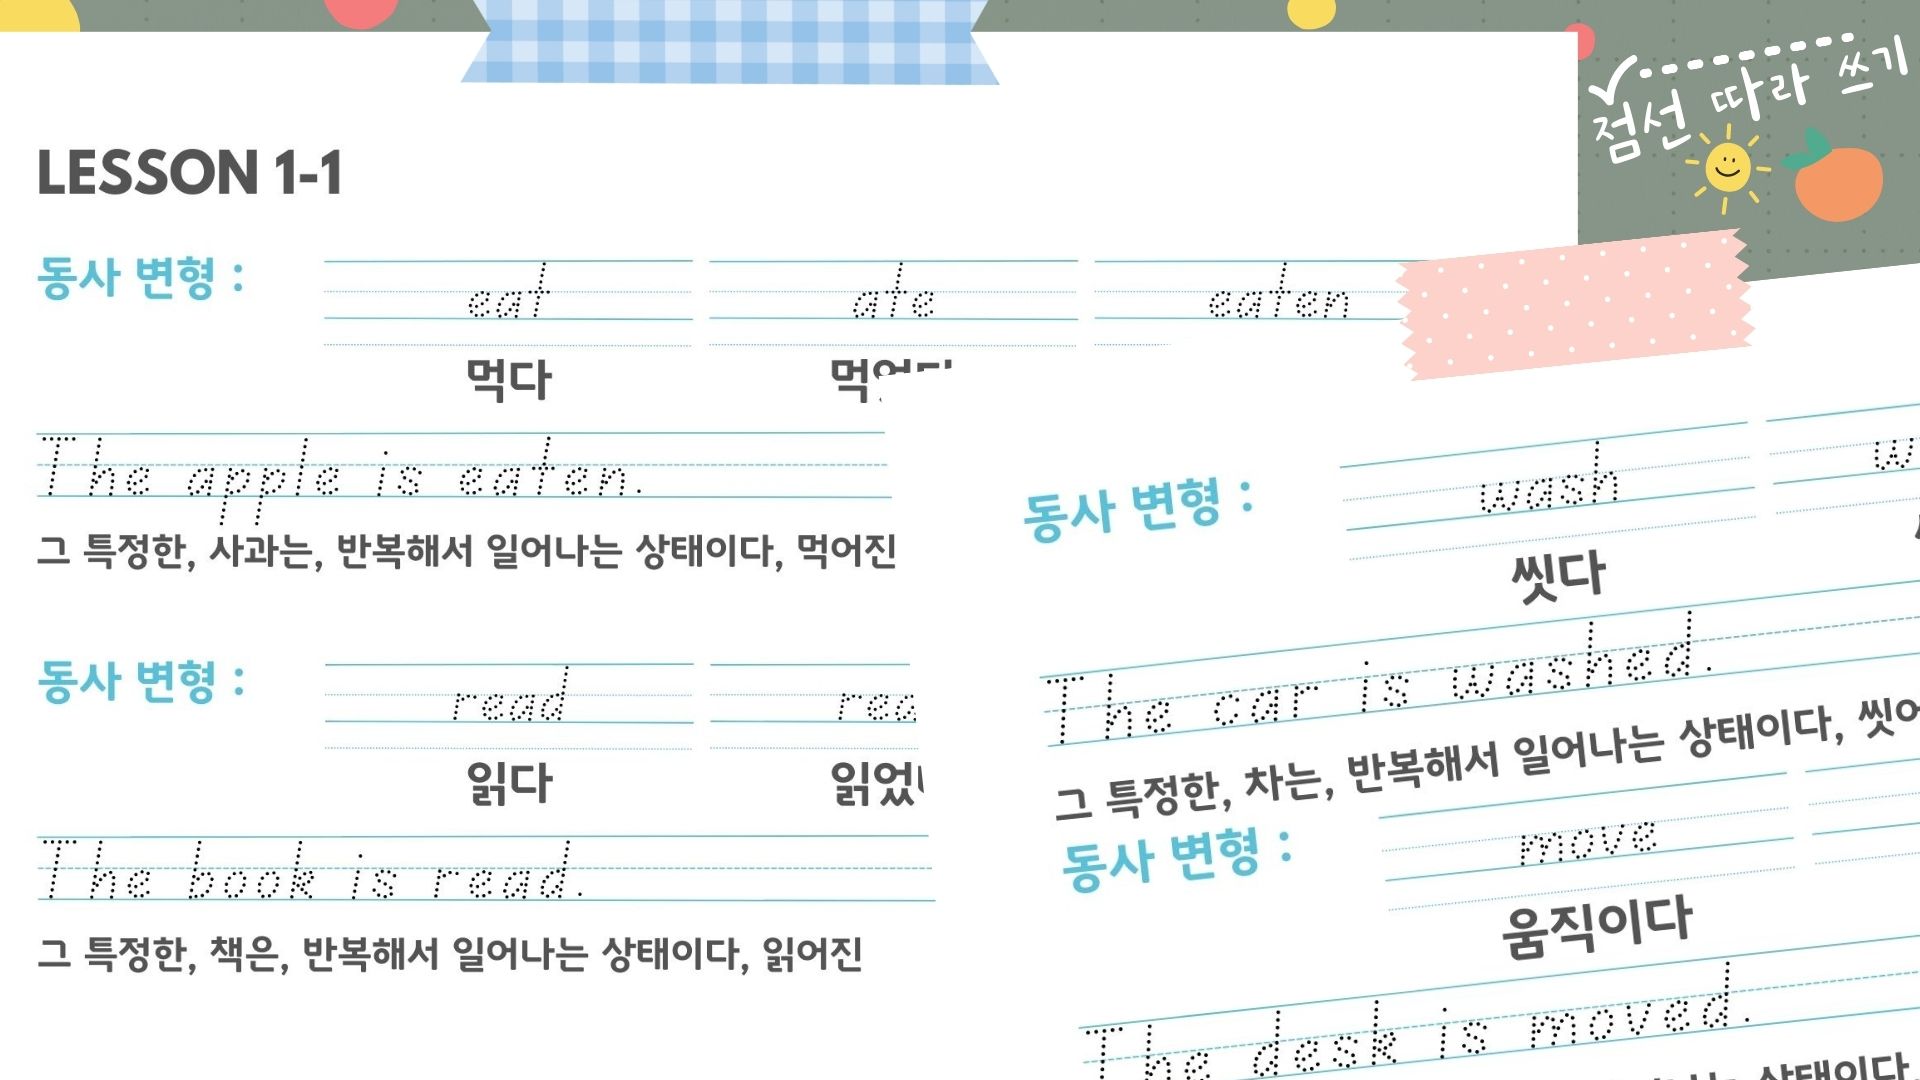 점선 따라 쓰기
LESSON 1-1
동사 변형 :
eat ate eaten
먹다
The apple is eaten.
그 특정한, 사과는, 반복해서 일어나는 상태이다, 먹어진
동사 변형 :
read
읽다
The book is read.
그 특정한, 책은, 반복해서 일어나는 상태이다, 읽어진
동사 변형 :
wash
씻다
The car is washed.
그 특정한, 차는, 반복해서 일어나는 상태이다,
동사 변형 :
move
움직이다
The desk is moved.
상태이다,